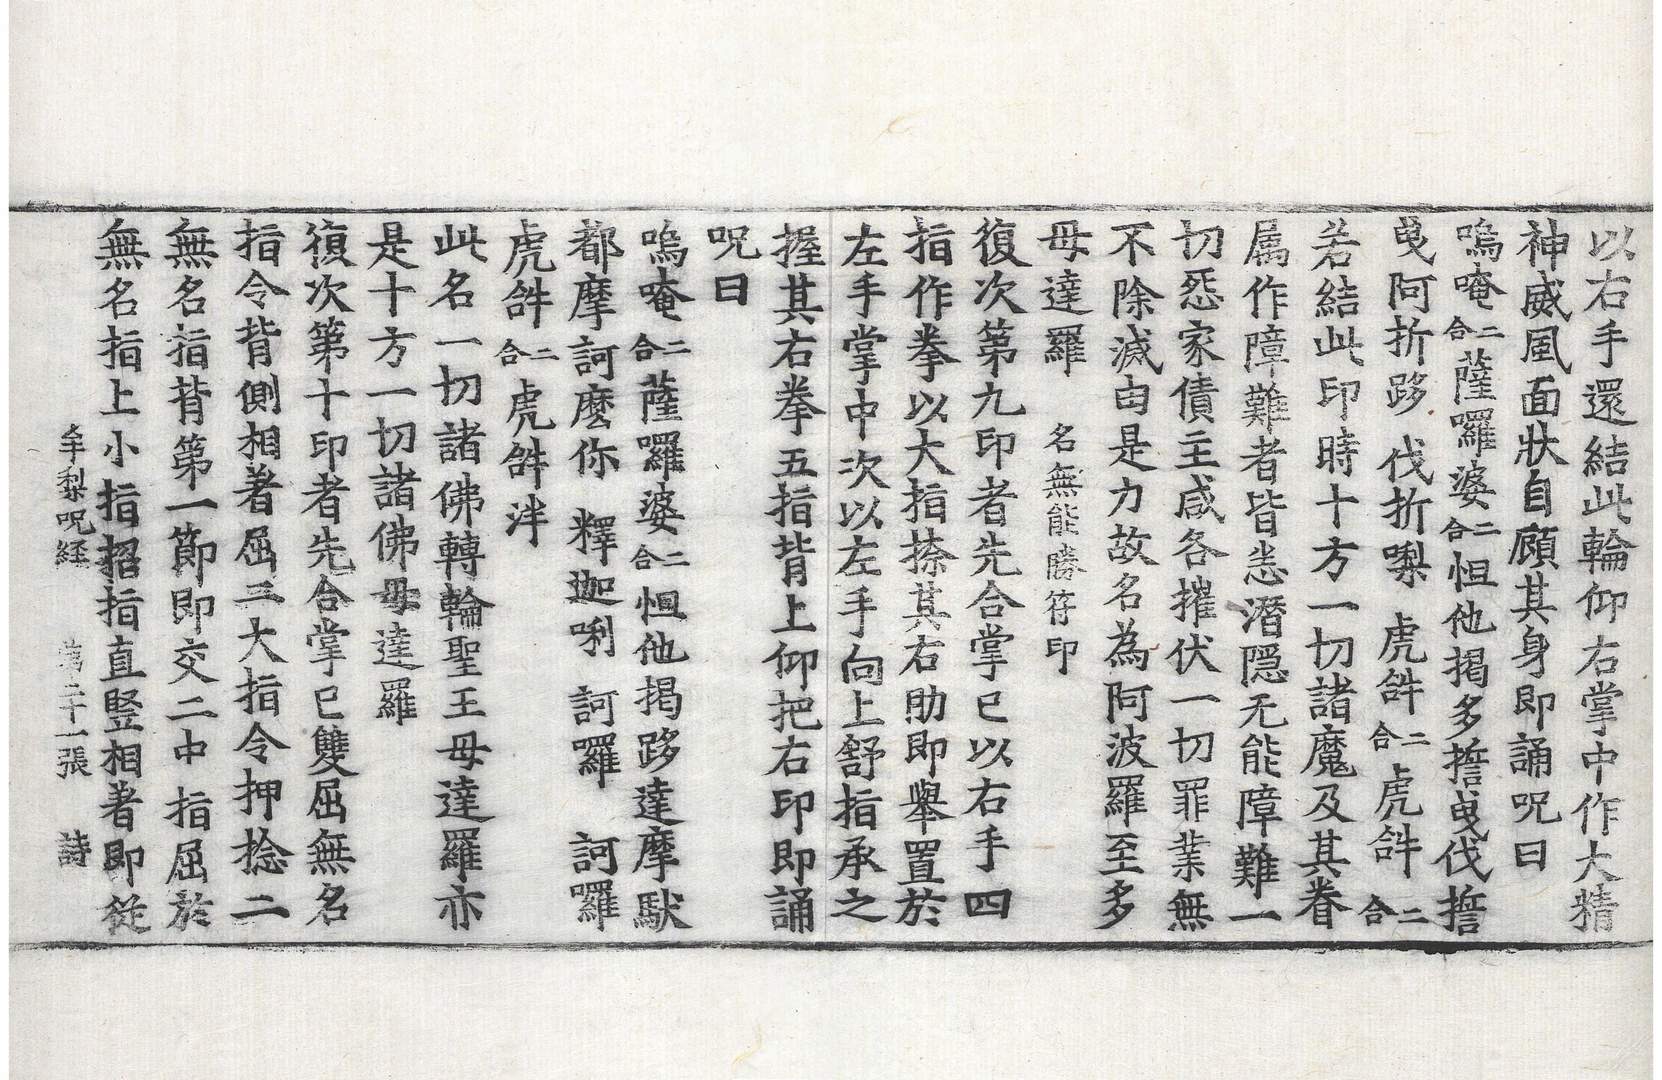 以右手還結此輪仰右掌中作大精
神威風面狀自顧其身即誦呪曰
嗚唵二合薩囉婆二合怛他揭多擔曳伐擔
曳阿折䟢伐折㘑虎𤙖二合虎𤙖二合
若結此印時十方一切諸魔及其眷
属作障難者皆悉潛隱无能障難一
切怨家債主咸各摧伏一切罪業無
不除滅由是力故名為阿波羅至多
母達羅 名無能勝符印
復次第九印者先合掌已以右手四
指作拳以大指捺其右肋即舉置於
左手掌中次以左手向上舒指承之
握其右拳五指背上仰把右印即誦
呪曰
嗚唵二合薩囉婆二合怛他揭䟢達摩馱
都摩訶麽你 釋迦唎 訶囉 訶囉
虎𤙖二合虎𤙖泮
此名一切諸佛轉輪聖王母達羅亦
是十方一切諸佛母達羅
復次第十印者先合掌已雙屈無名
指令背側相著屈三大指令押捻二
無名指背第一節即交二中指屈於
無名指上小指招指直竪相著即從
牟梨呪経 第二十一張 詩